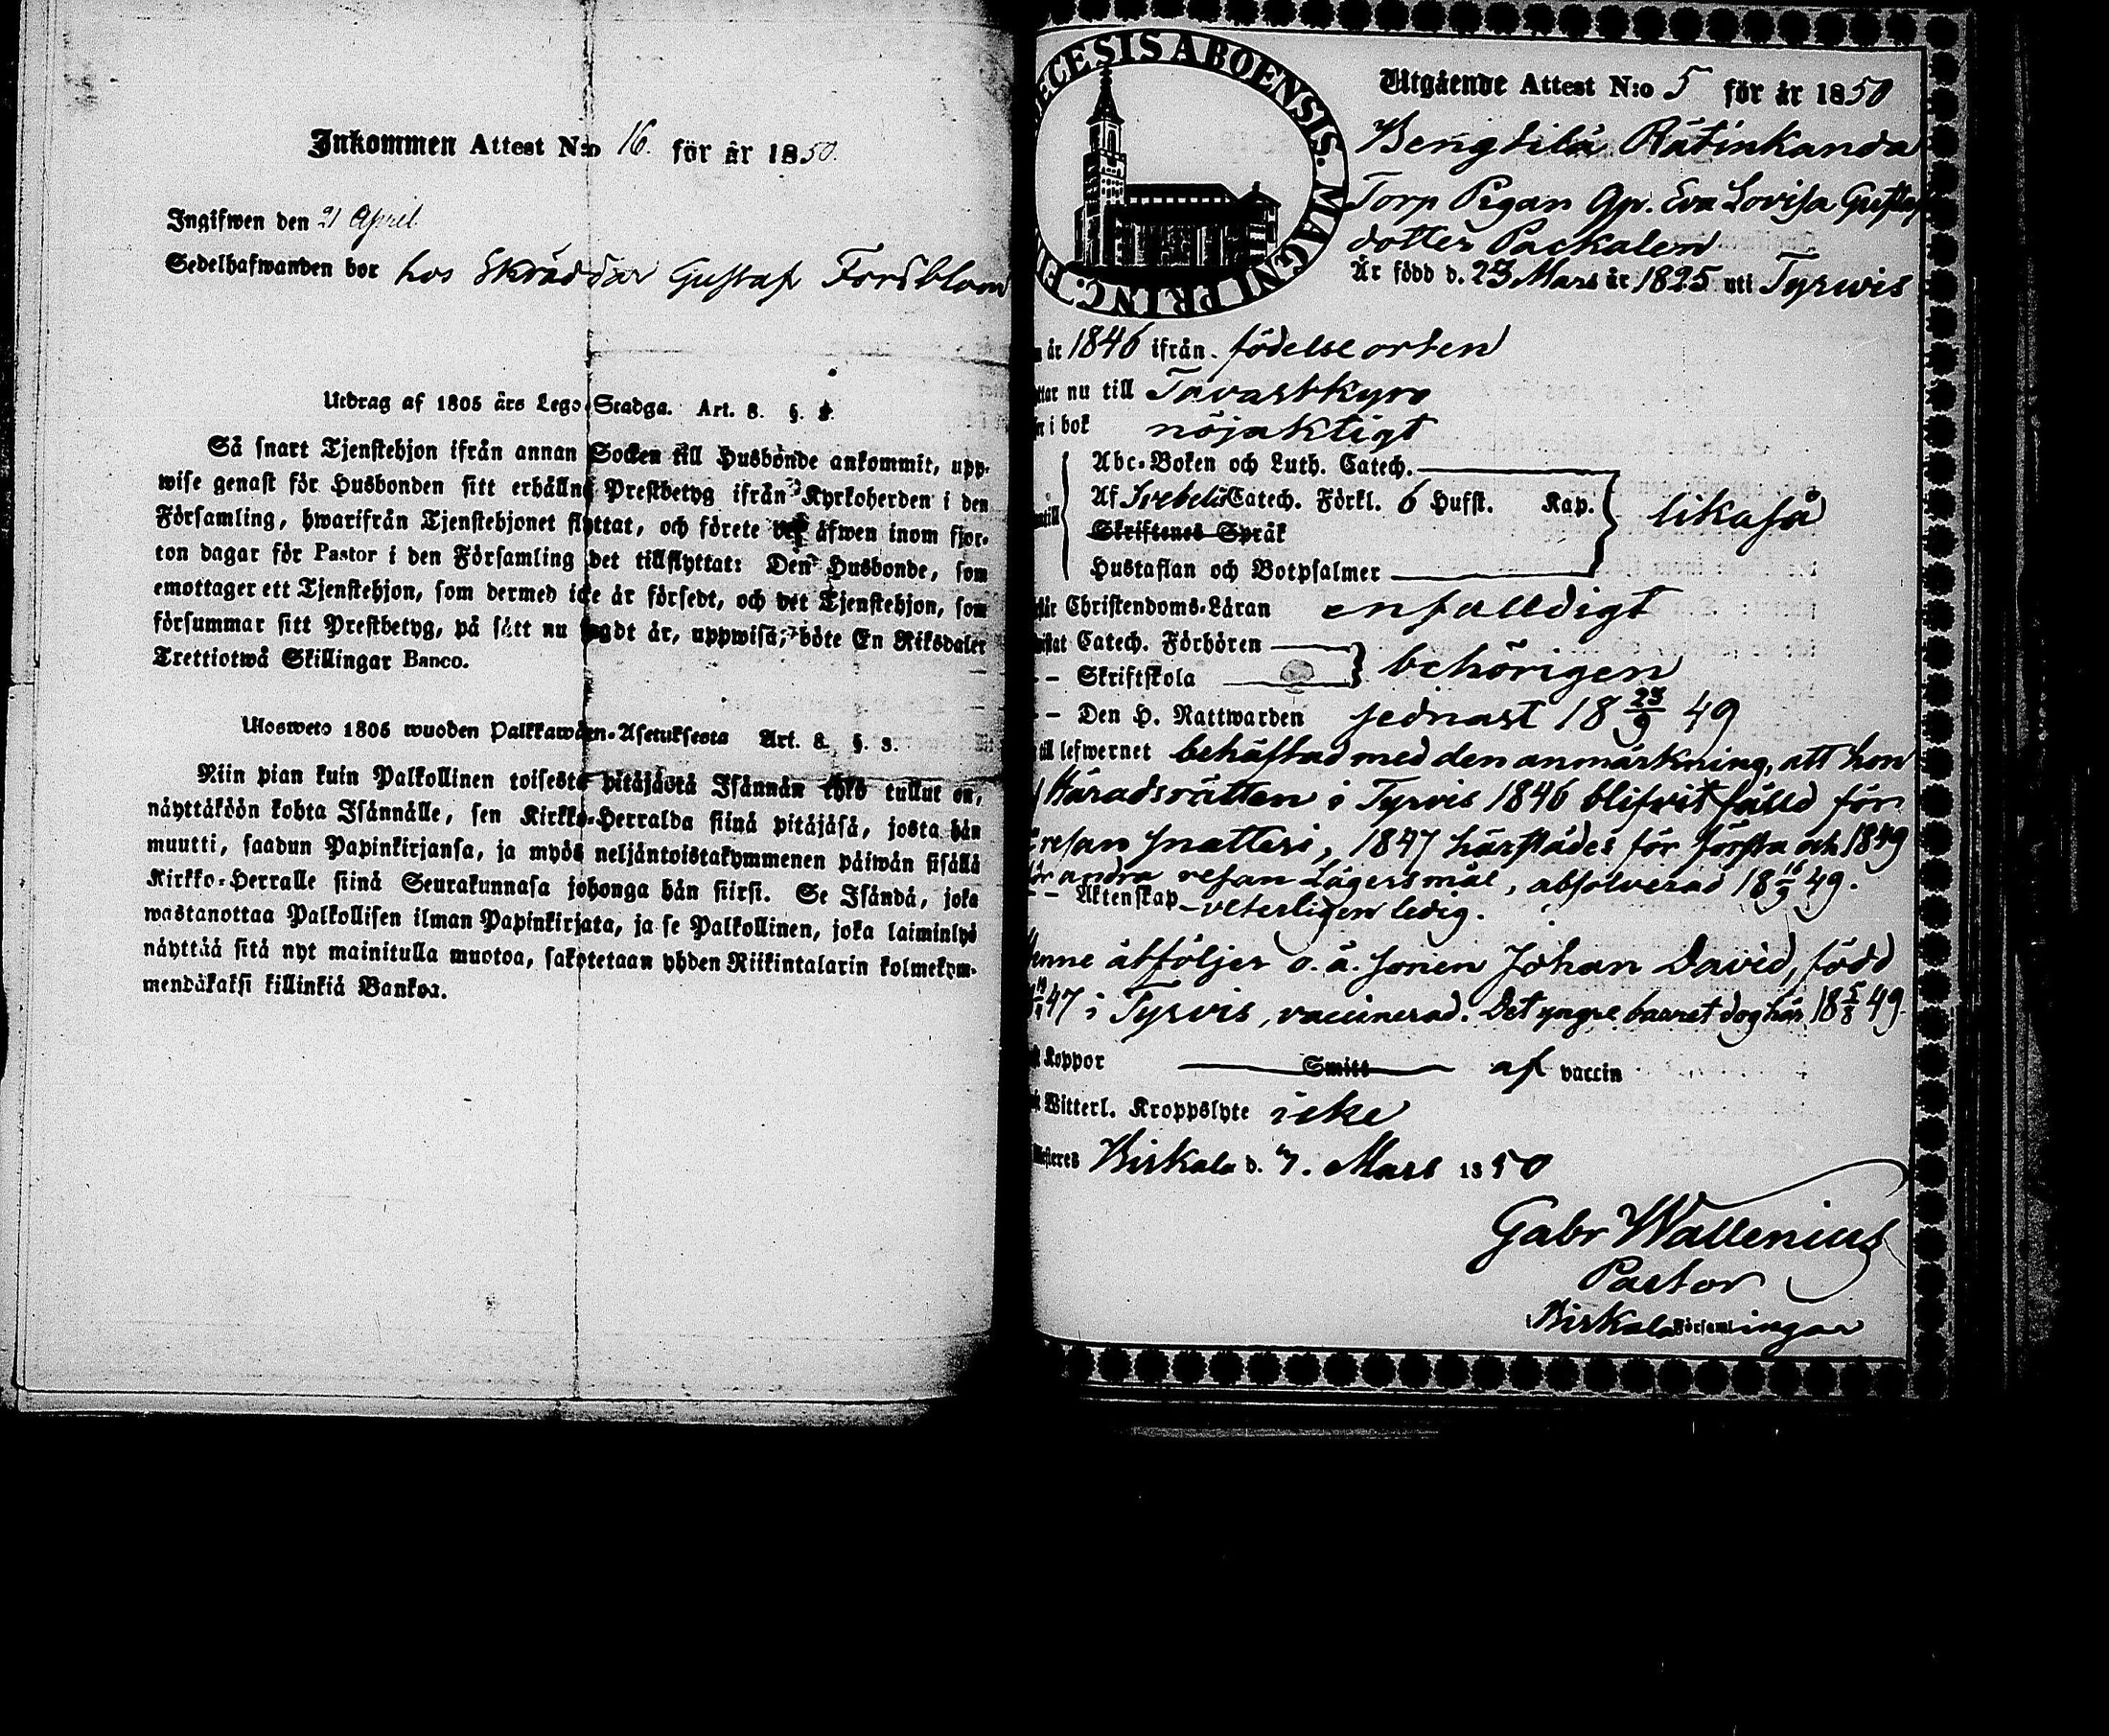 Inkommen Attest N:o 16. för år 1850.
Ingifwen den 21 April.
Sedelhafwanden bor hos Skräddar Gustaf Fordblom
Utdrag af 1805 års Lego-Stadga. Art. 8. §.
Så snart Tjenstehjon ifrån annan Socken till Husbonde ankommit, upp-
wise genast för Husbonden sitt erhållna Prestbetyg ifrån Kyrkoherden i den
Församling, hwarifrån Tjenstehjonet flyttat, och förete äfwen inom fjor-
ton dagar för Pastor i den Församling det tillflyttat: Den Husbonde, som
emottager ett Tjenstehjon, som dermed icke är försedt, och det Tjenstehjon, som
försummar sitt Prestbetyg, på sätt nu sagdt är, uppwisa, böte En Riksdaler
Trettiotwå Skillingar Banco.
Ulosweto 1805 wuoden Palkkawäen-Asetuksesta Art. 8. §. 3.
Niin pian kuin Palkollinen toisesta pitäjästä Isännän tykö tullut on,
näyttäköön kohta Isännälle, sen Kirkko-Herralda siinä pitäjäsä, josta hän
muutti, saadun Papinkirjansa, ja myös neljäntoistakymmenen päiwän sisällä
Kirkko-Herralle siinä Seurakunnasa johonga hän siirsi. Se Isändä, joka
wastanottaa Palkollisen ilman Papinkirjata, ja se Palkollinen, joka laiminlyö
näyttää sitä nyt mainitulla muotoa, sakotetaan yhden Riikintalarin kolmekym-
mendäkaksi killinkiä Bankoa.
ECESIS ABOENSIS. MAGNI PRINC. FI
Utgående Attest N:o 5 för år 1850
Bengtilä Rätinkanda
Torp Pigan Qp. Eva Lovisa Gustafs
dotter Packalen
Är född d. 23 Mars år 1825 uti Tyrwis
år 1846 ifrån födelseorten
nu till Tavastkyro
i bok nöjaktigt
Abc-Boken och Luth. Catech.
Af Svebelii Catech. Förkl. 6 Hufst. Kap. likaså
Skriftenes Språk
Hustaflan och Botpsalmer
Christendoms-Läran enfalldigt
Catech. Förhören
– Skriftskola behörigen
– Den H. Nattwarden sednast 18 23/9 49
till lefwernet behäftad med den anmärkning, att hon
Häradsrätten i Tyrvis 1846 blifvit fälld för
resan snatteri, 1847 härstädes för första och 1849
för andra resan Lägersmål, absolverad 18 16/9 49.
– Äktenskap veterligen ledig.
Henne åtföljer o. ä. sonen Johan David, född
47 i Tyrvis, vaccinerad. Det yngre barnet dog här 18 5/8 49.
Koppor Smitt af vaccin
Witterl. Kroppslyte icke
Birkala d. 7. Mars 1850
Gabr Wallenius
Pastor
i Birkala Församlingar